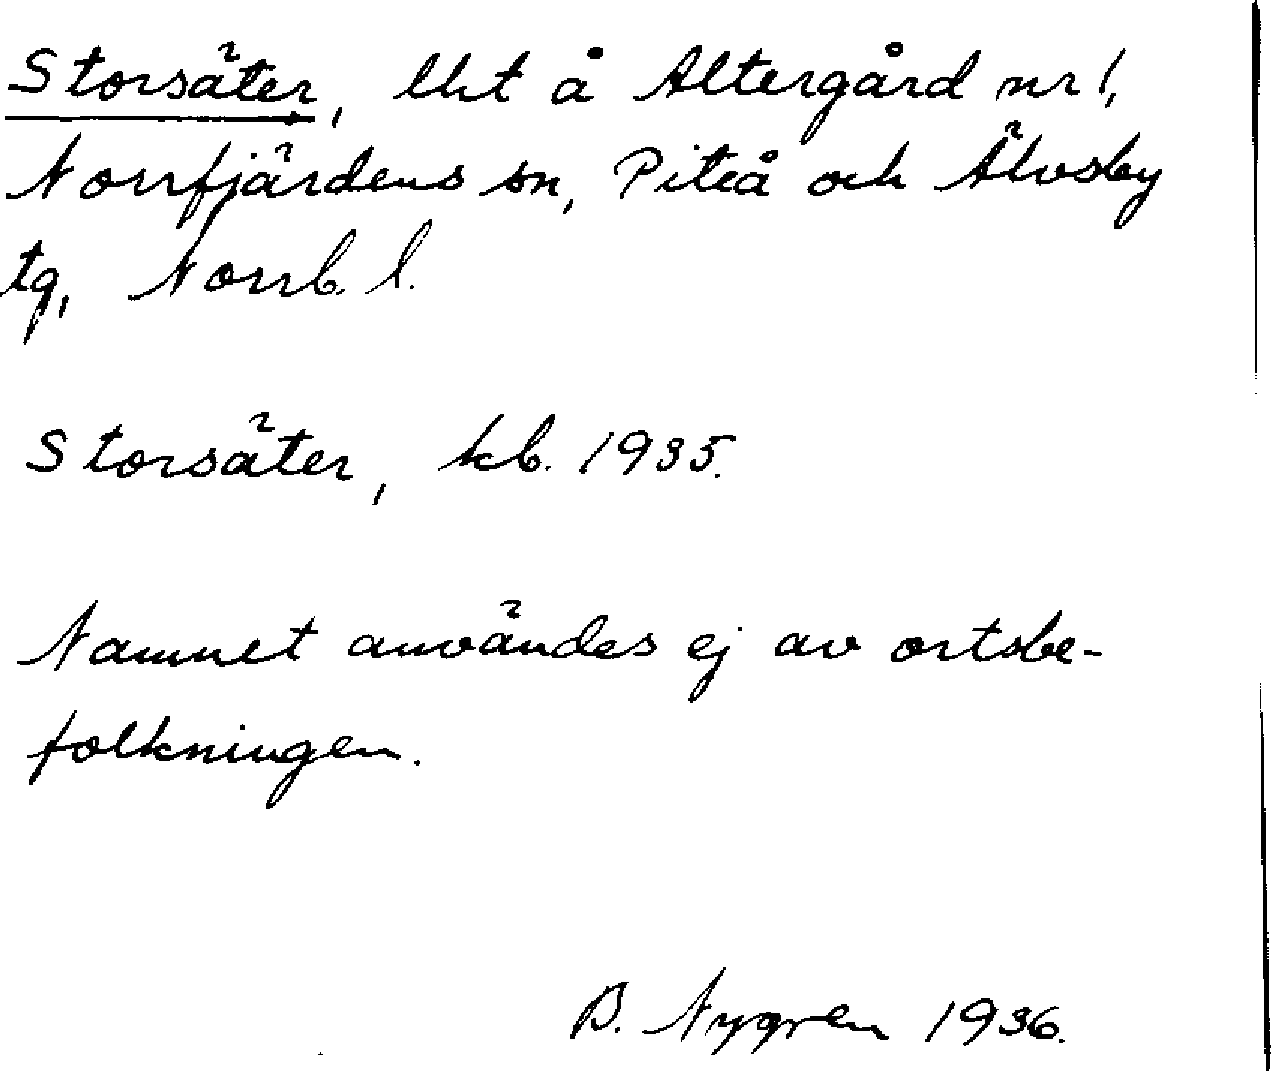 Storsäter, lht å Altergård nr 1,
Norrfjärdens sn, Piteå och Älvsby
tg, Norrb. l.
Storsäter, kb. 1935.
Namnet användes ej av ortsbe-
folkningen.
B. Nygren 1936.